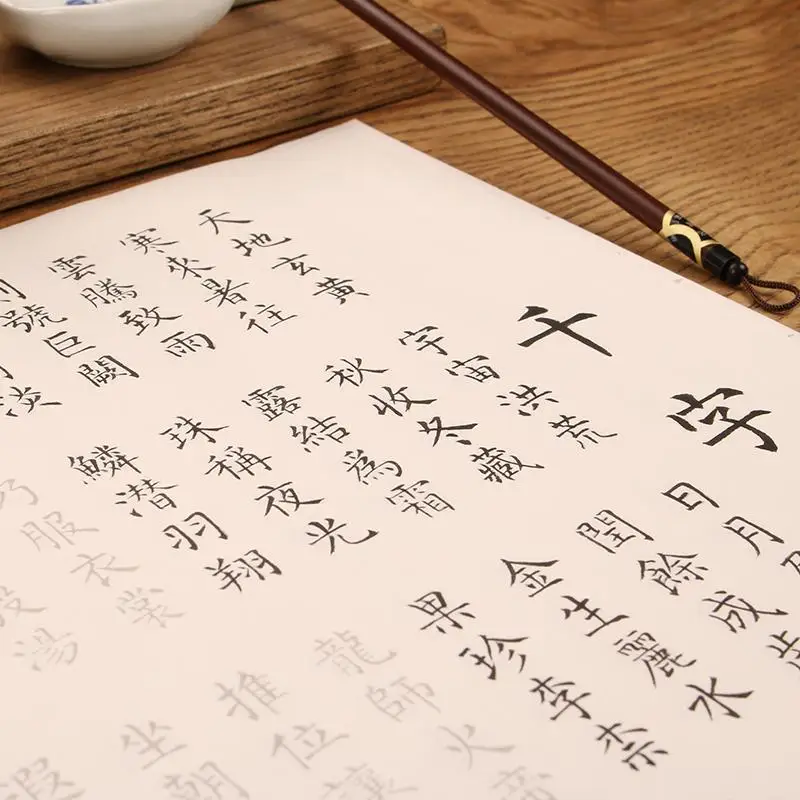 千字
天地玄黄
宇宙洪荒
日月
寒來暑往
秋收冬藏
閏餘成歲
雲騰致雨
露結爲霜
金生麗水
號巨闕
珠稱夜光
果珍李柰
淡
鱗潜羽翔
龍師火
服衣裳
推位讓
湯
坐朝